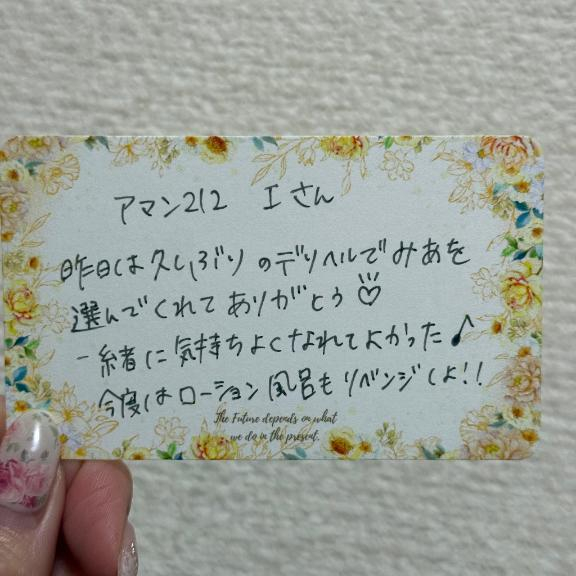 アマン212 Iさん
昨日は久しぶりのデリヘルでみあを
選んでくれてありがとう♡
一緒に気持ちよくなれてよかった♪
今度はローション風呂もリベンジしよ!!
The Future depends on what
we do in the present.